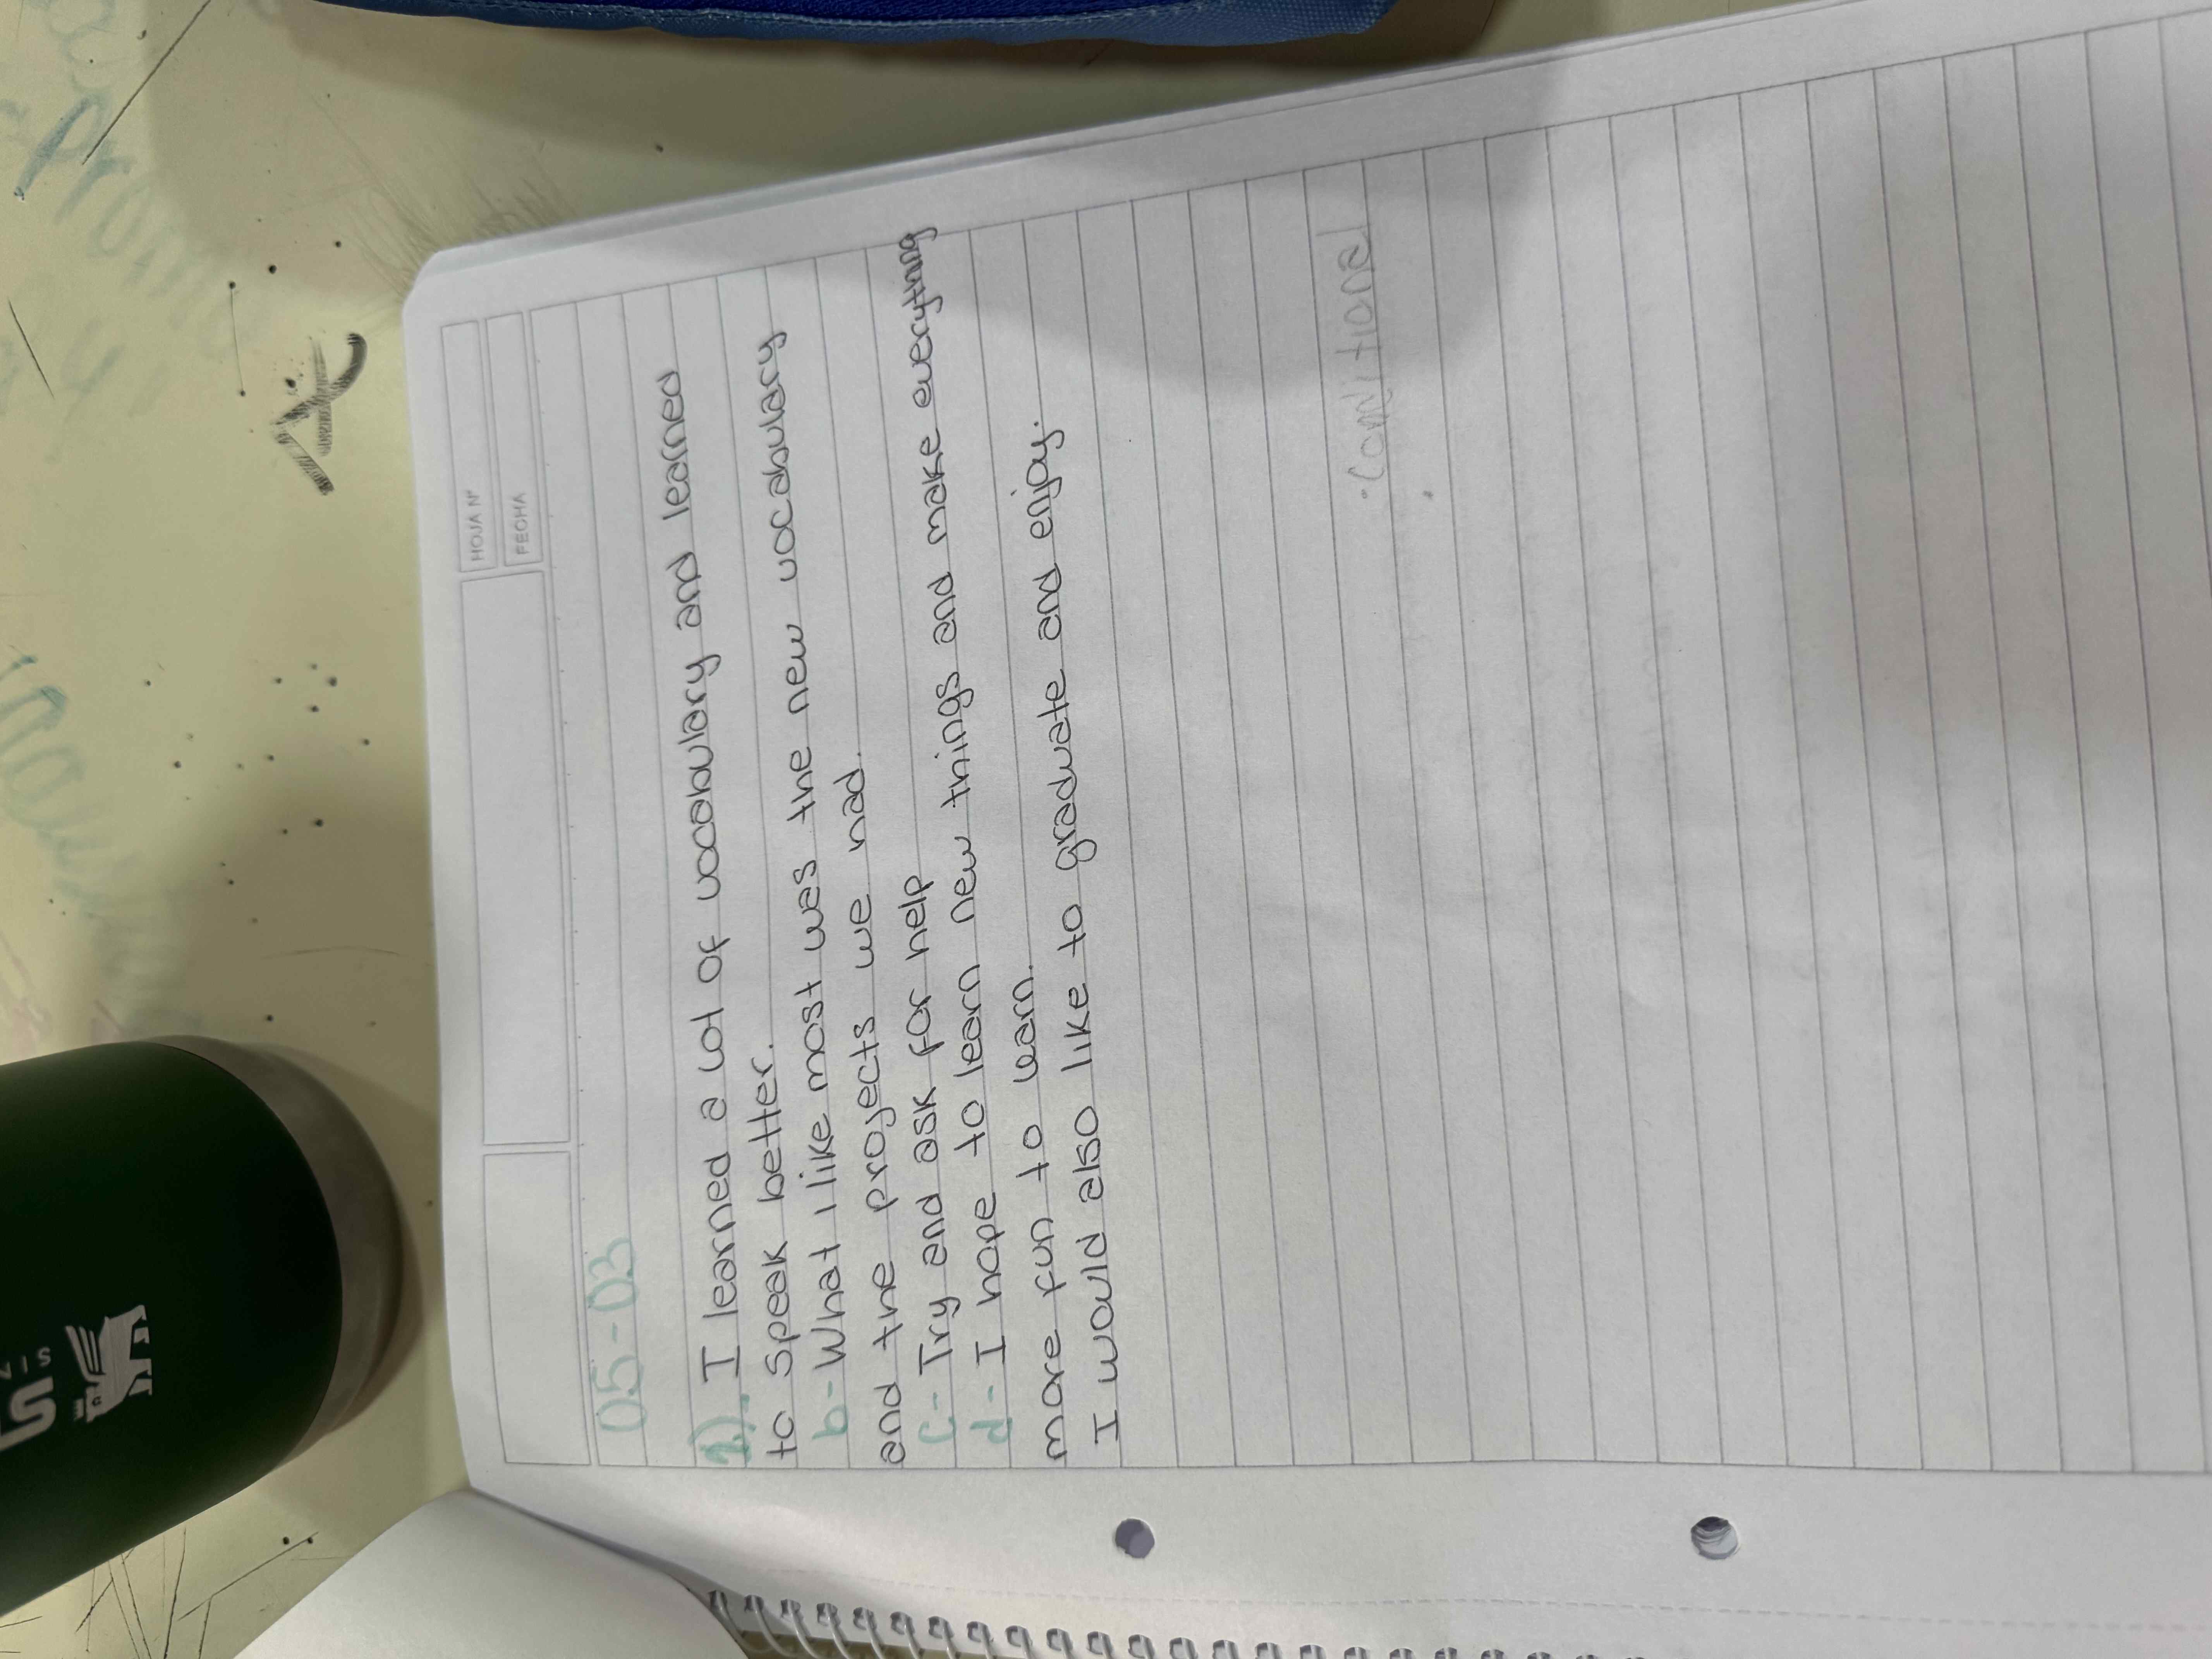 HOJA N°
FECHA
05-03
1). I learned a lot of vocabulary and learned
to speak better.
b- What i like most was the new vocabulary
and the projects we had.
c- Try and ask for help
d- I hope to learn new things and make everything
more fun to learn.
I would also like to graduate and enjoy.